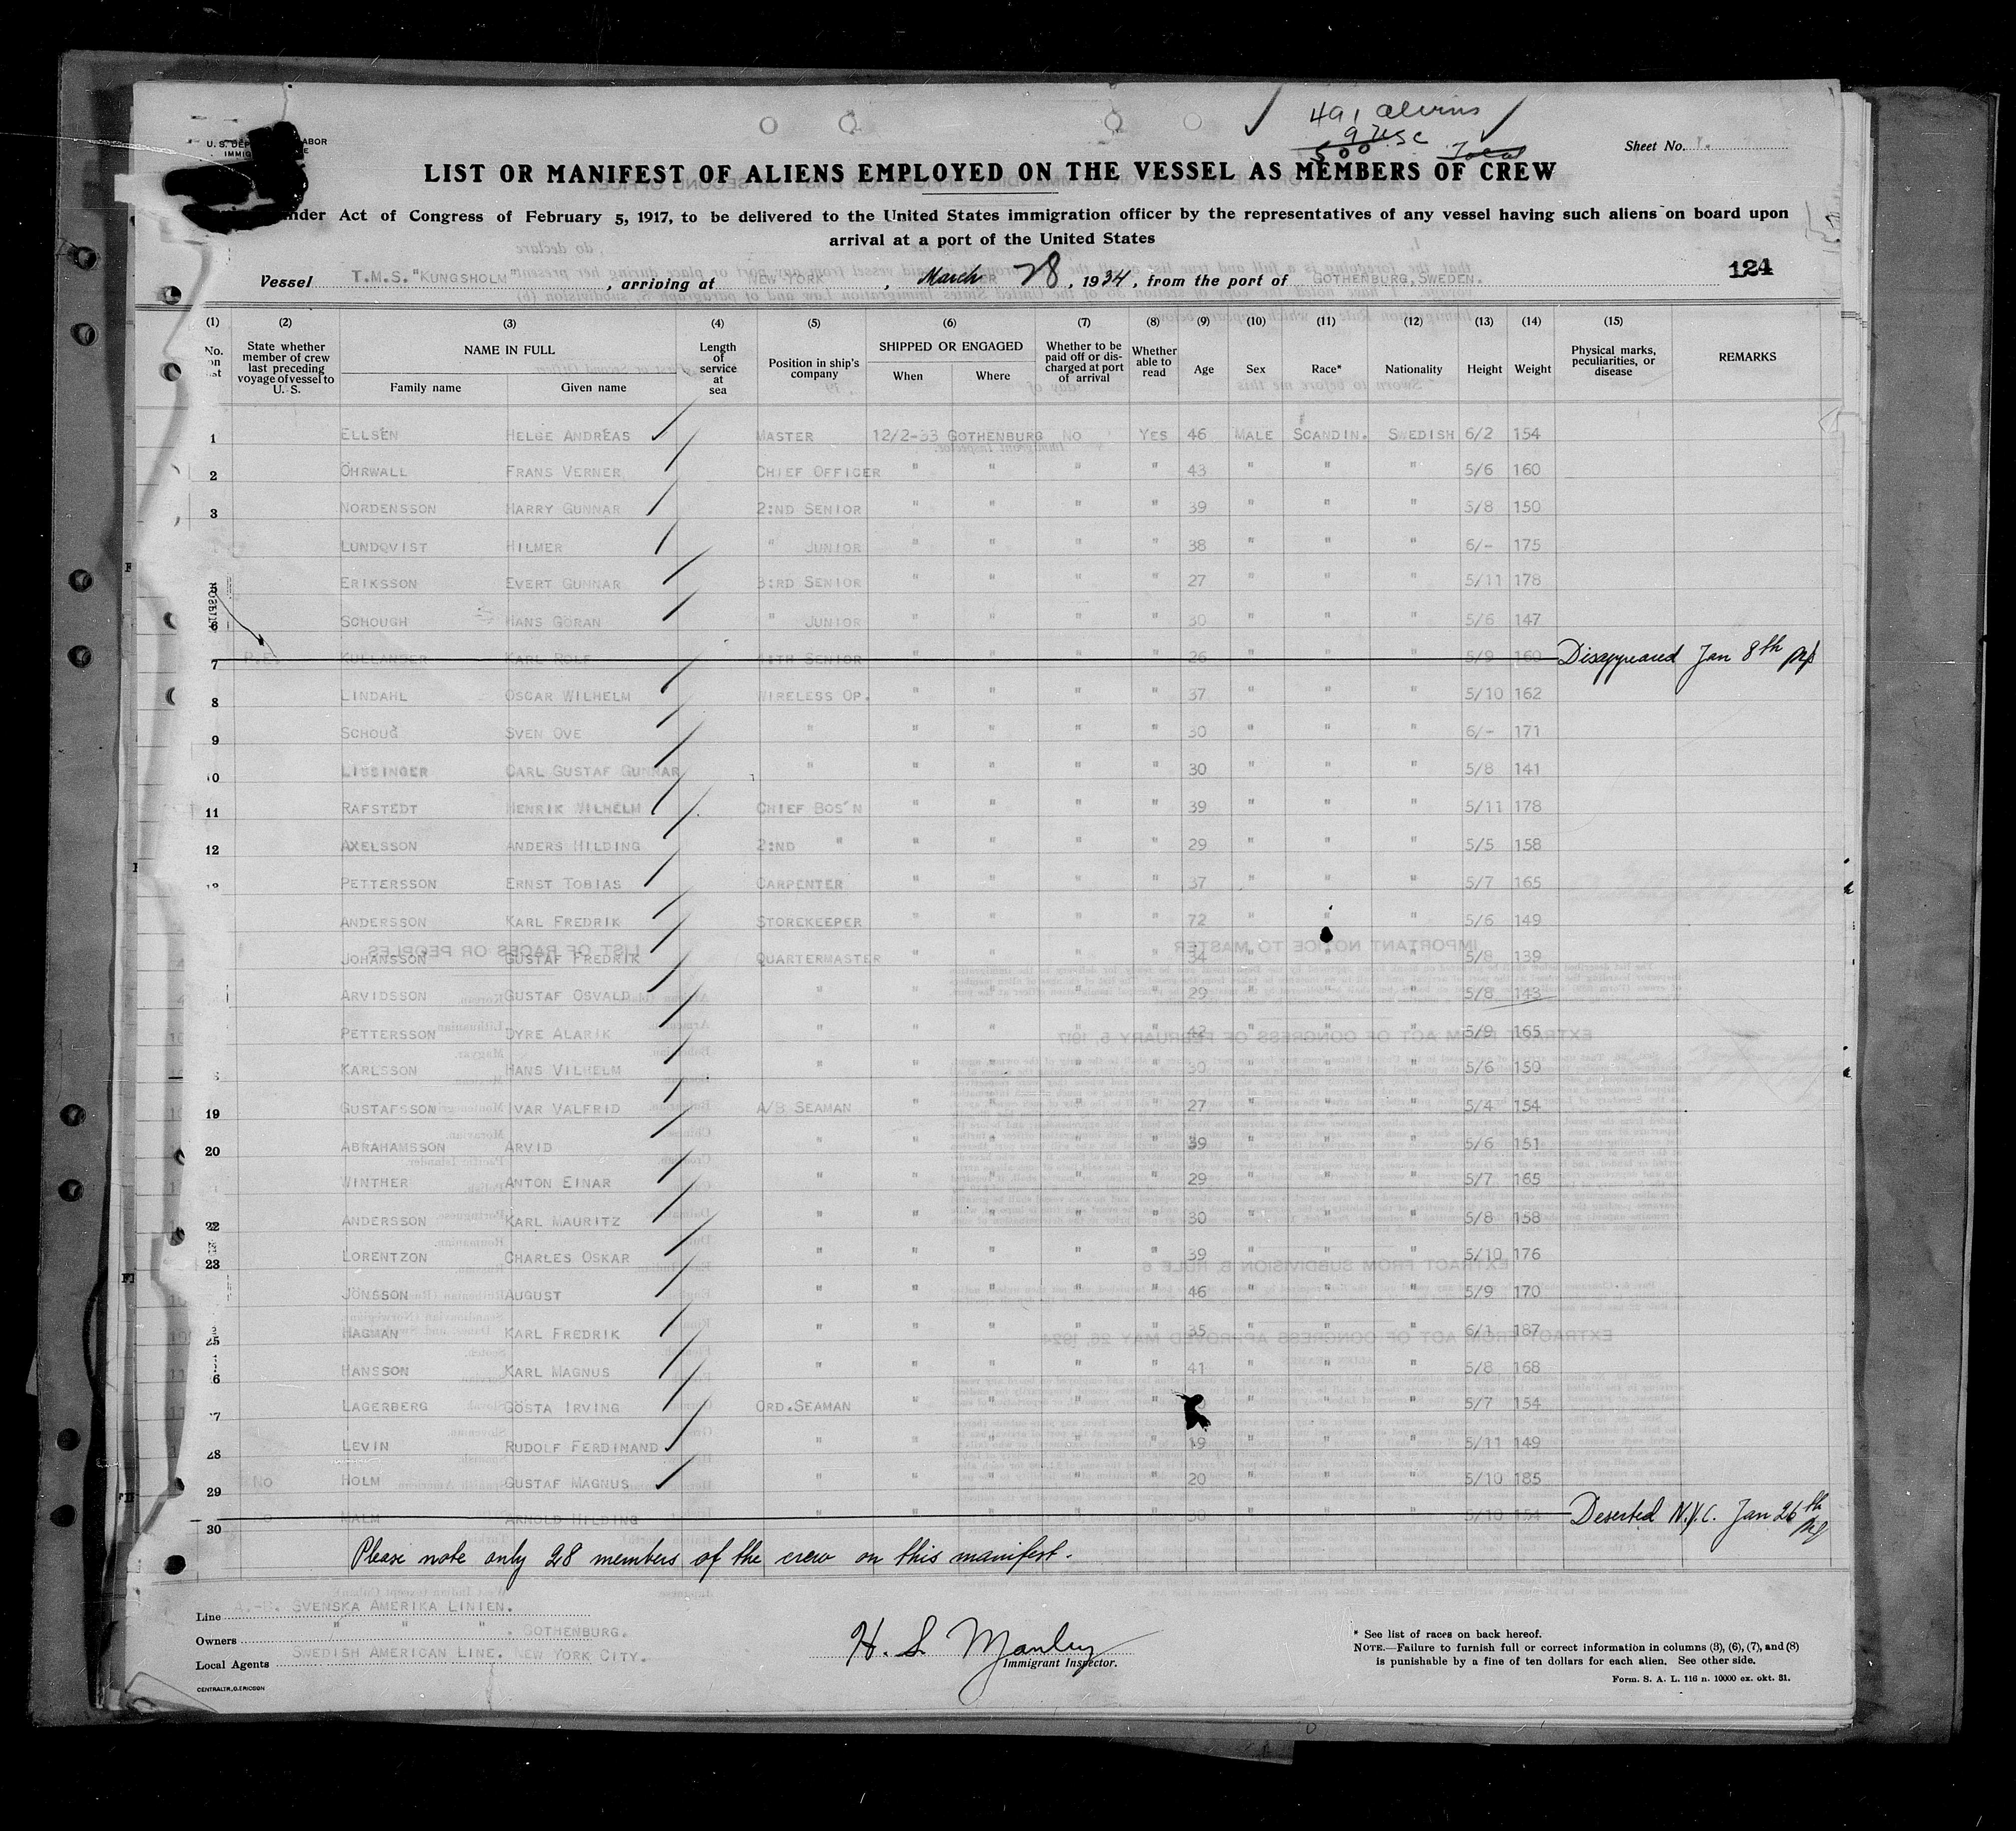 491 aliens
9 USC
500 Total
U. S. DEP LABOR
IMMIG E
Sheet No. 1.
LIST OR MANIFEST OF ALIENS EMPLOYED ON THE VESSEL AS MEMBERS OF CREW
nder Act of Congress of February 5, 1917, to be delivered to the United States immigration officer by the representatives of any vessel having such aliens on board upon
arrival at a port of the United States
124
Vessel T.M.S. "KUNGSHOLM", arriving at NEW YORK, March 28, 1934, from the port of GOTHENBURG, SWEDEN.
(1) (2) (3) (4) (5) (6) (7) (8) (9) (10) (11) (12) (13) (14) (15)
No. on list State whether member of crew last preceding voyage of vessel to U. S. NAME IN FULL Family name Given name Length of service at sea Position in ship's company SHIPPED OR ENGAGED When Where Whether to be paid off or discharged at port of arrival Whether able to read Age Sex Race* Nationality Height Weight Physical marks, peculiarities, or disease REMARKS
1 ELLSEN HELGE ANDREAS MASTER 12/2-33 GOTHENBURG NO YES 46 MALE SCANDIN. SWEDISH 6/2 154
2 ÖHRWALL FRANS VERNER CHIEF OFFICER " " " " 43 " " " 5/6 160
3 NORDENSSON HARRY GUNNAR 2:ND SENIOR " " " " 39 " " " 5/8 150
LUNDQVIST HILMER " JUNIOR " " " " 38 " " " 6/- 175
5 ERIKSSON EVERT GUNNAR 3:RD SENIOR " " " " 27 " " " 5/11 178
6 SCHOUGH HANS GÖRAN " JUNIOR " " " " 30 " " " 5/6 147
7 P.E. KULLANDER KARL ROLF 4:TH SENIOR " " " " 26 " " " 5/9 160 Disappeared Jan 8th
8 LINDAHL OSCAR WILHELM WIRELESS OP. " " " " 37 " " " 5/10 162
9 SCHOUG SVEN OVE " " " " " 30 " " " 6/- 171
10 LISSINGER CARL GUSTAF GUNNAR " " " " " 30 " " " 5/8 141
11 RAFSTEDT HENRIK WILHELM CHIEF BOS'N " " " " 39 " " " 5/11 178
12 AXELSSON ANDERS HILDING 2:ND " " " " " 29 " " " 5/5 158
13 PETTERSSON ERNST TOBIAS CARPENTER " " " " 37 " " " 5/7 165
ANDERSSON KARL FREDRIK STOREKEEPER " " " " 72 " " " 5/6 149
JOHANSSON GUSTAF FREDRIK QUARTERMASTER " " " " 34 " " " 5/8 139
ARVIDSSON GUSTAF OSVALD " " " " " 29 " " " 5/8 143
PETTERSSON DYRE ALARIK " " " " " 42 " " " 5/9 165
KARLSSON HANS VILHELM " " " " " 30 " " " 5/6 150
19 GUSTAFSSON IVAR VALFRID A/B SEAMAN " " " " 27 " " " 5/4 154
20 ABRAHAMSSON ARVID " " " " " 39 " " " 5/6 151
WINTHER ANTON EINAR " " " " " 29 " " " 5/7 165
22 ANDERSSON KARL MAURITZ " " " " " 30 " " " 5/8 158
23 LORENTZON CHARLES OSKAR " " " " " 39 " " " 5/10 176
JÖNSSON AUGUST " " " " " 46 " " " 5/9 170
25 HAGMAN KARL FREDRIK " " " " " 35 " " " 6/1 187
6 HANSSON KARL MAGNUS " " " " " 41 " " " 5/8 168
7 LAGERBERG GÖSTA IRVING ORD.SEAMAN " " " " " " " 5/7 154
28 LEVIN RUDOLF FERDINAND " " " " " 19 " " " 5/11 149
29 NO HOLM GUSTAF MAGNUS " " " " " 20 " " " 5/10 185
30 MALM ARNOLD HILDING " " " " " 30 " " " 5/10 154 Deserted N.Y.C. Jan 26th
Please note only 28 members of the crew on this manifest.
Line A.-B. SVENSKA AMERIKA LINIEN.
Owners " " " . GOTHENBURG.
Local Agents SWEDISH AMERICAN LINE. NEW YORK CITY.
CENTRALTR., G. ERICSON
H. S. Manley
Immigrant Inspector.
* See list of races on back hereof.
NOTE.—Failure to furnish full or correct information in columns (3), (6), (7), and (8)
is punishable by a fine of ten dollars for each alien. See other side.
Form. S. A. L. 116 n. 10000 ex. okt. 31.